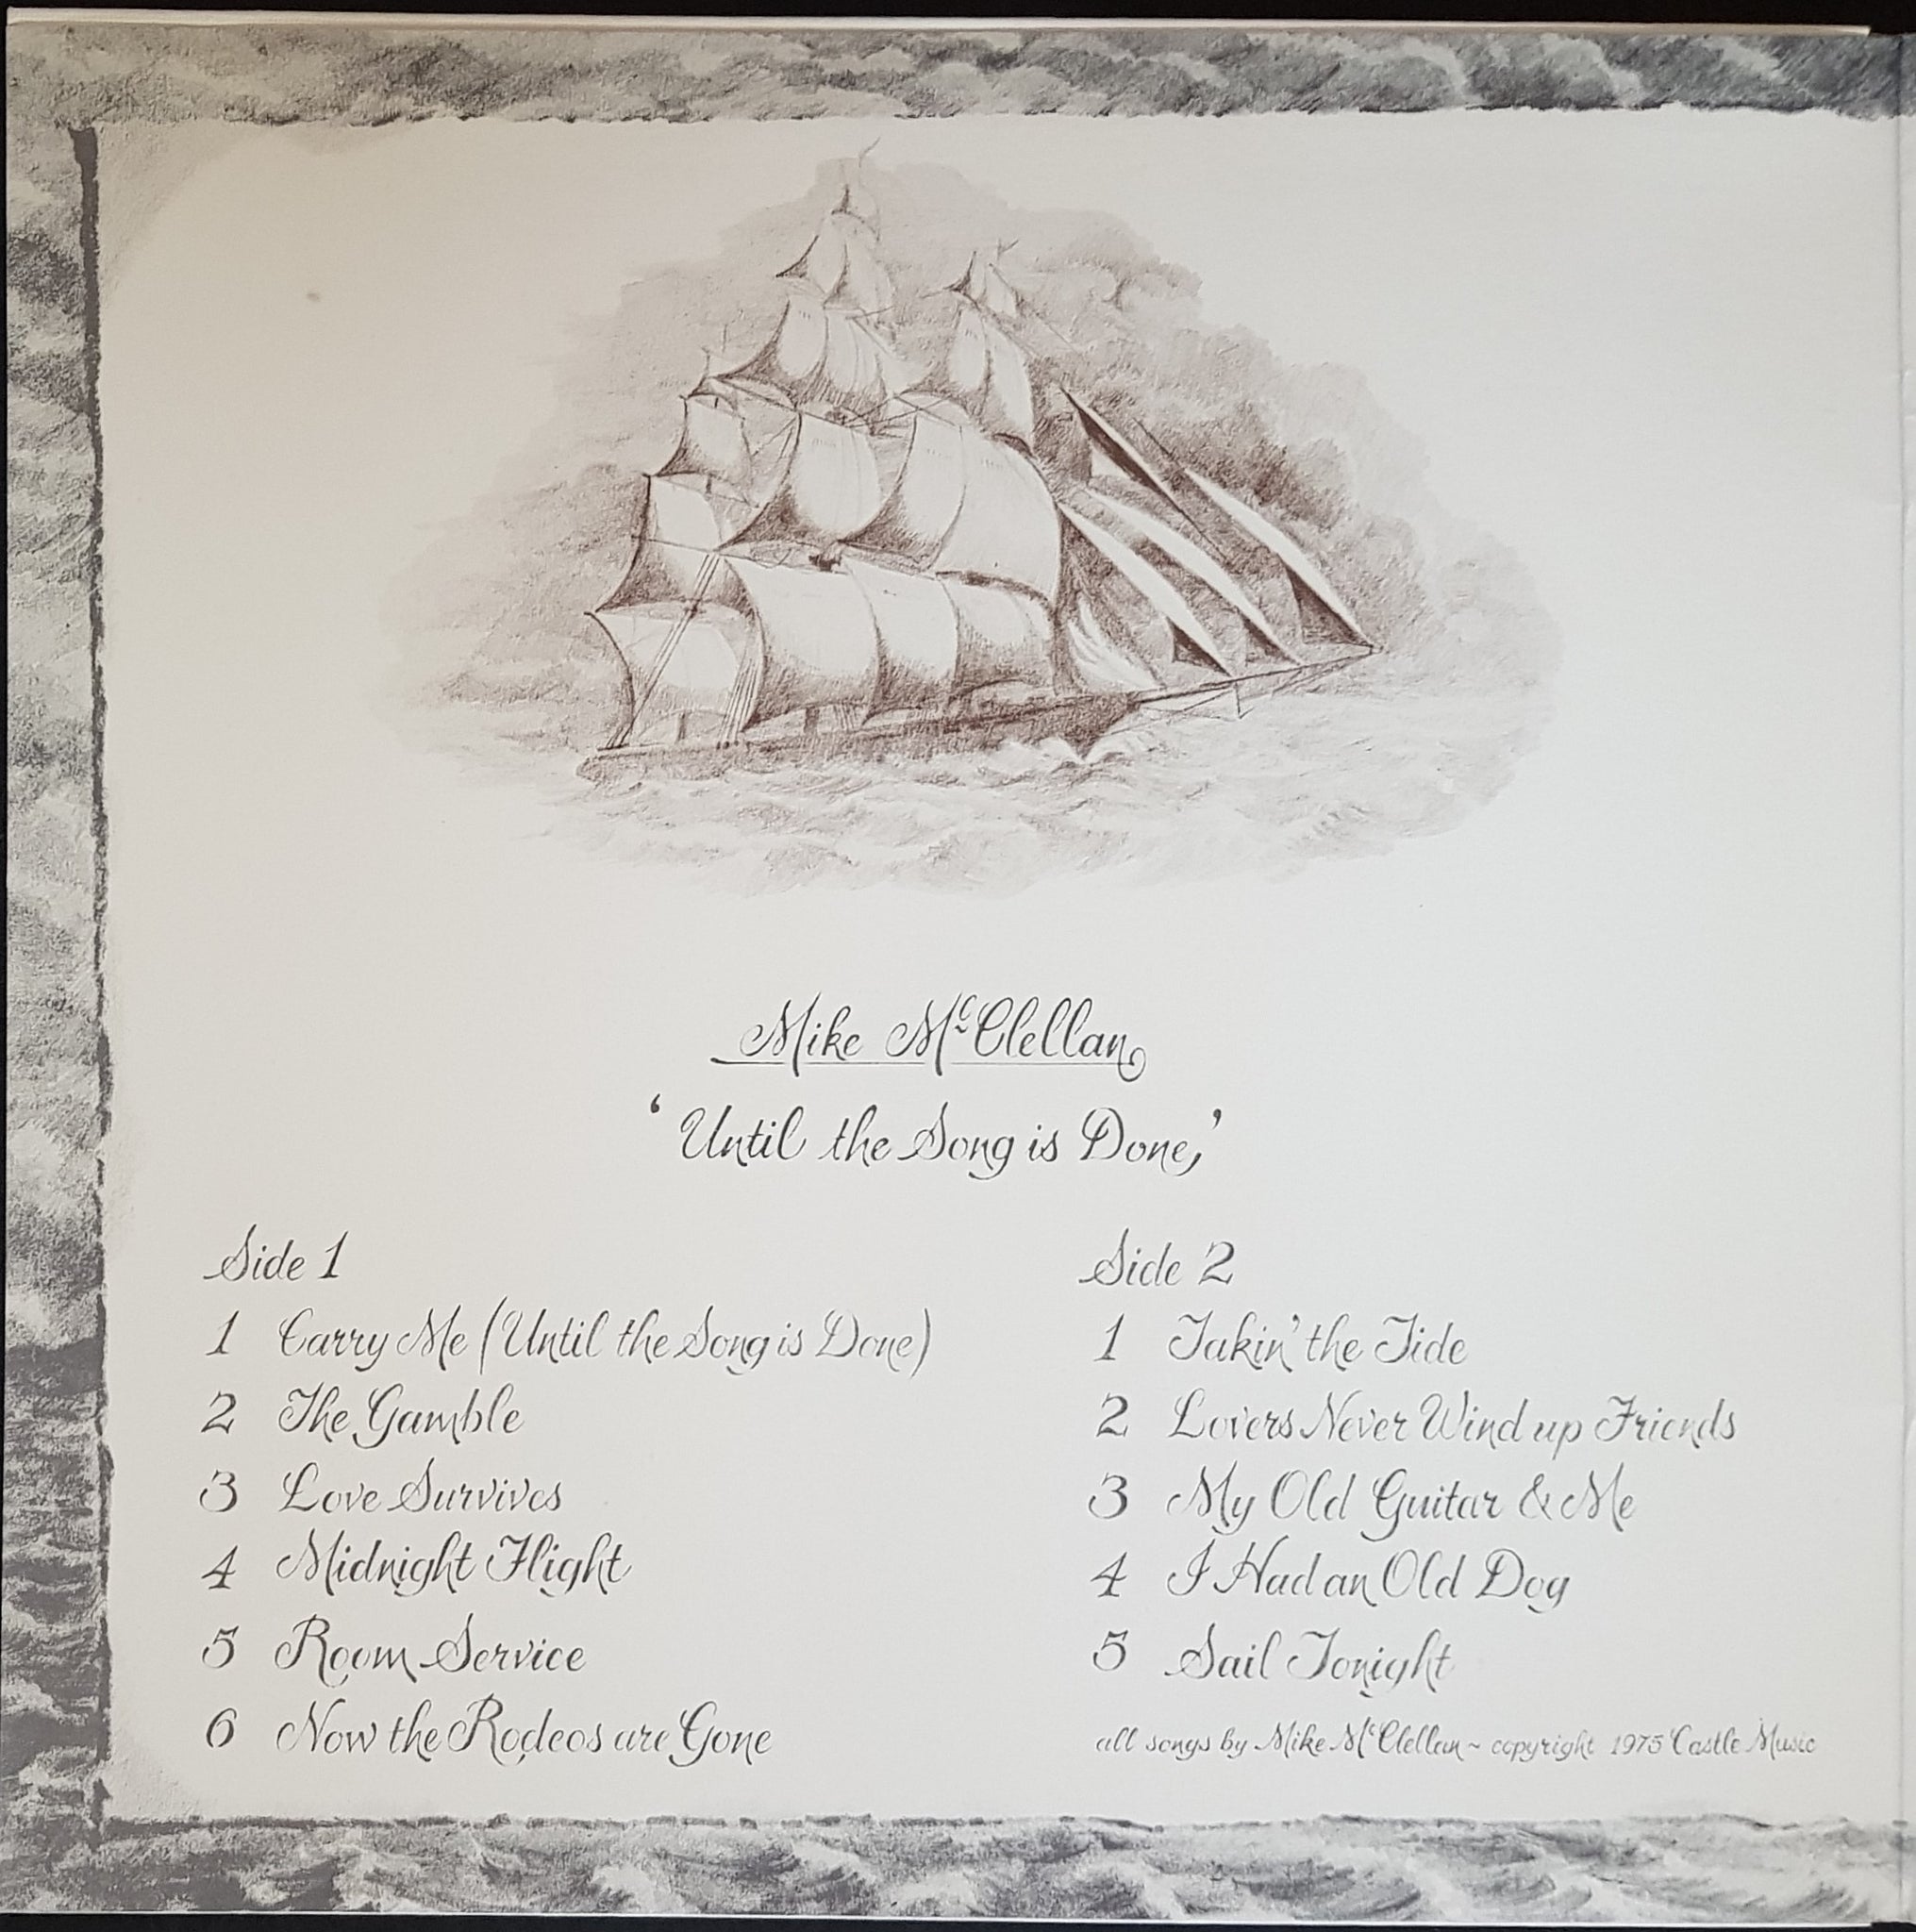 Mike McClellan
'Until the Song is Done,'
Side 1
1 Carry Me (Until the Song is Done)
2 The Gamble
3 Love Survives
4 Midnight Flight
5 Room Service
6 Now the Rodeos are Gone
Side 2
1 Takin' the Tide
2 Lovers Never Wind up Friends
3 My Old Guitar & Me
4 I Had an Old Dog
5 Sail Tonight
all songs by Mike McClellan ~ copyright 1975 Castle Music